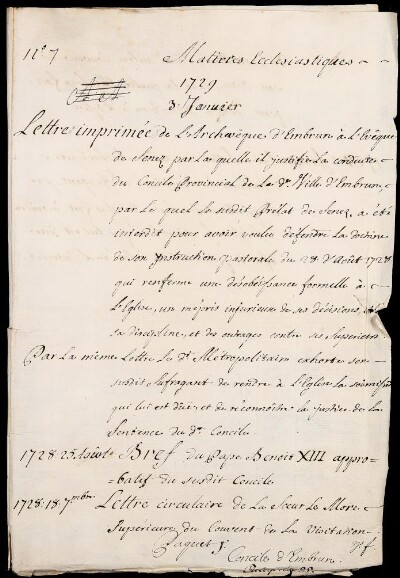 N° 7 Matieres Ecclesiastiques
1729
3 Janvier
Lettre imprimée de L'Archevêque d'Embrun à L'Evêque
de Senez par la quelle il justifie La conduite
du Concile Provincial de La de. Ville d'Embrun,
par Le quel Le susdit Prélat de Senez, a été
interdit pour avoir voulu defendre La doctrine
de son Instruction pastorale du 28 d'Aôut 1728
qui renferme une desobéissance formelle à
L'Eglise, un mépris injurieux de ses décisions, et de
sa discipline, et des outrages contre ses Superieurs
Par La même Lettre Le dt. Métropolitain exhorte son
susdit Sufragant de rendre à L'Eglise La soûmission
qui lui est dûe, et de reconnoitre la justice de la
Sentence du dt. Concile
1728. 25. Bref du Pape Benoit XIII appro=
=batif du susdit Concile
1728. 18. 7mbre Lettre circulaire de La Sœur Le More
Superieure du Couvent de La Visitation
Paquet J. Concile d'Embrun